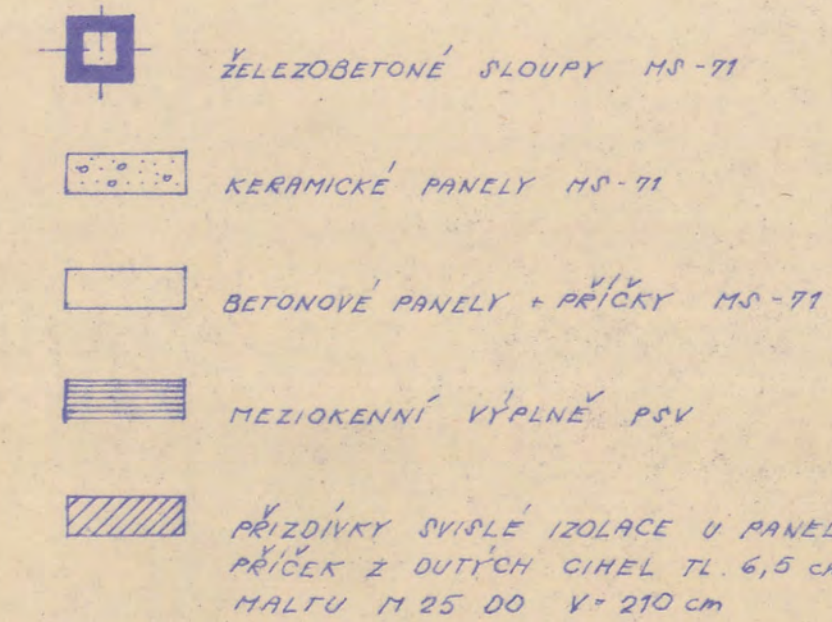 ŽELEZOBETONÉ SLOUPY MS-71
KERAMICKÉ PANELY MS-71
BETONOVÉ PANELY + PŘÍČKY MS-71
MEZIOKENNÍ VÝPLNĚ PSV
PŘIZDÍVKY SVISLÉ IZOLACE U PANEL
PŘÍČEK Z DUTÝCH CIHEL TL. 6,5 cm
MALTU M 25 DO V=210 cm